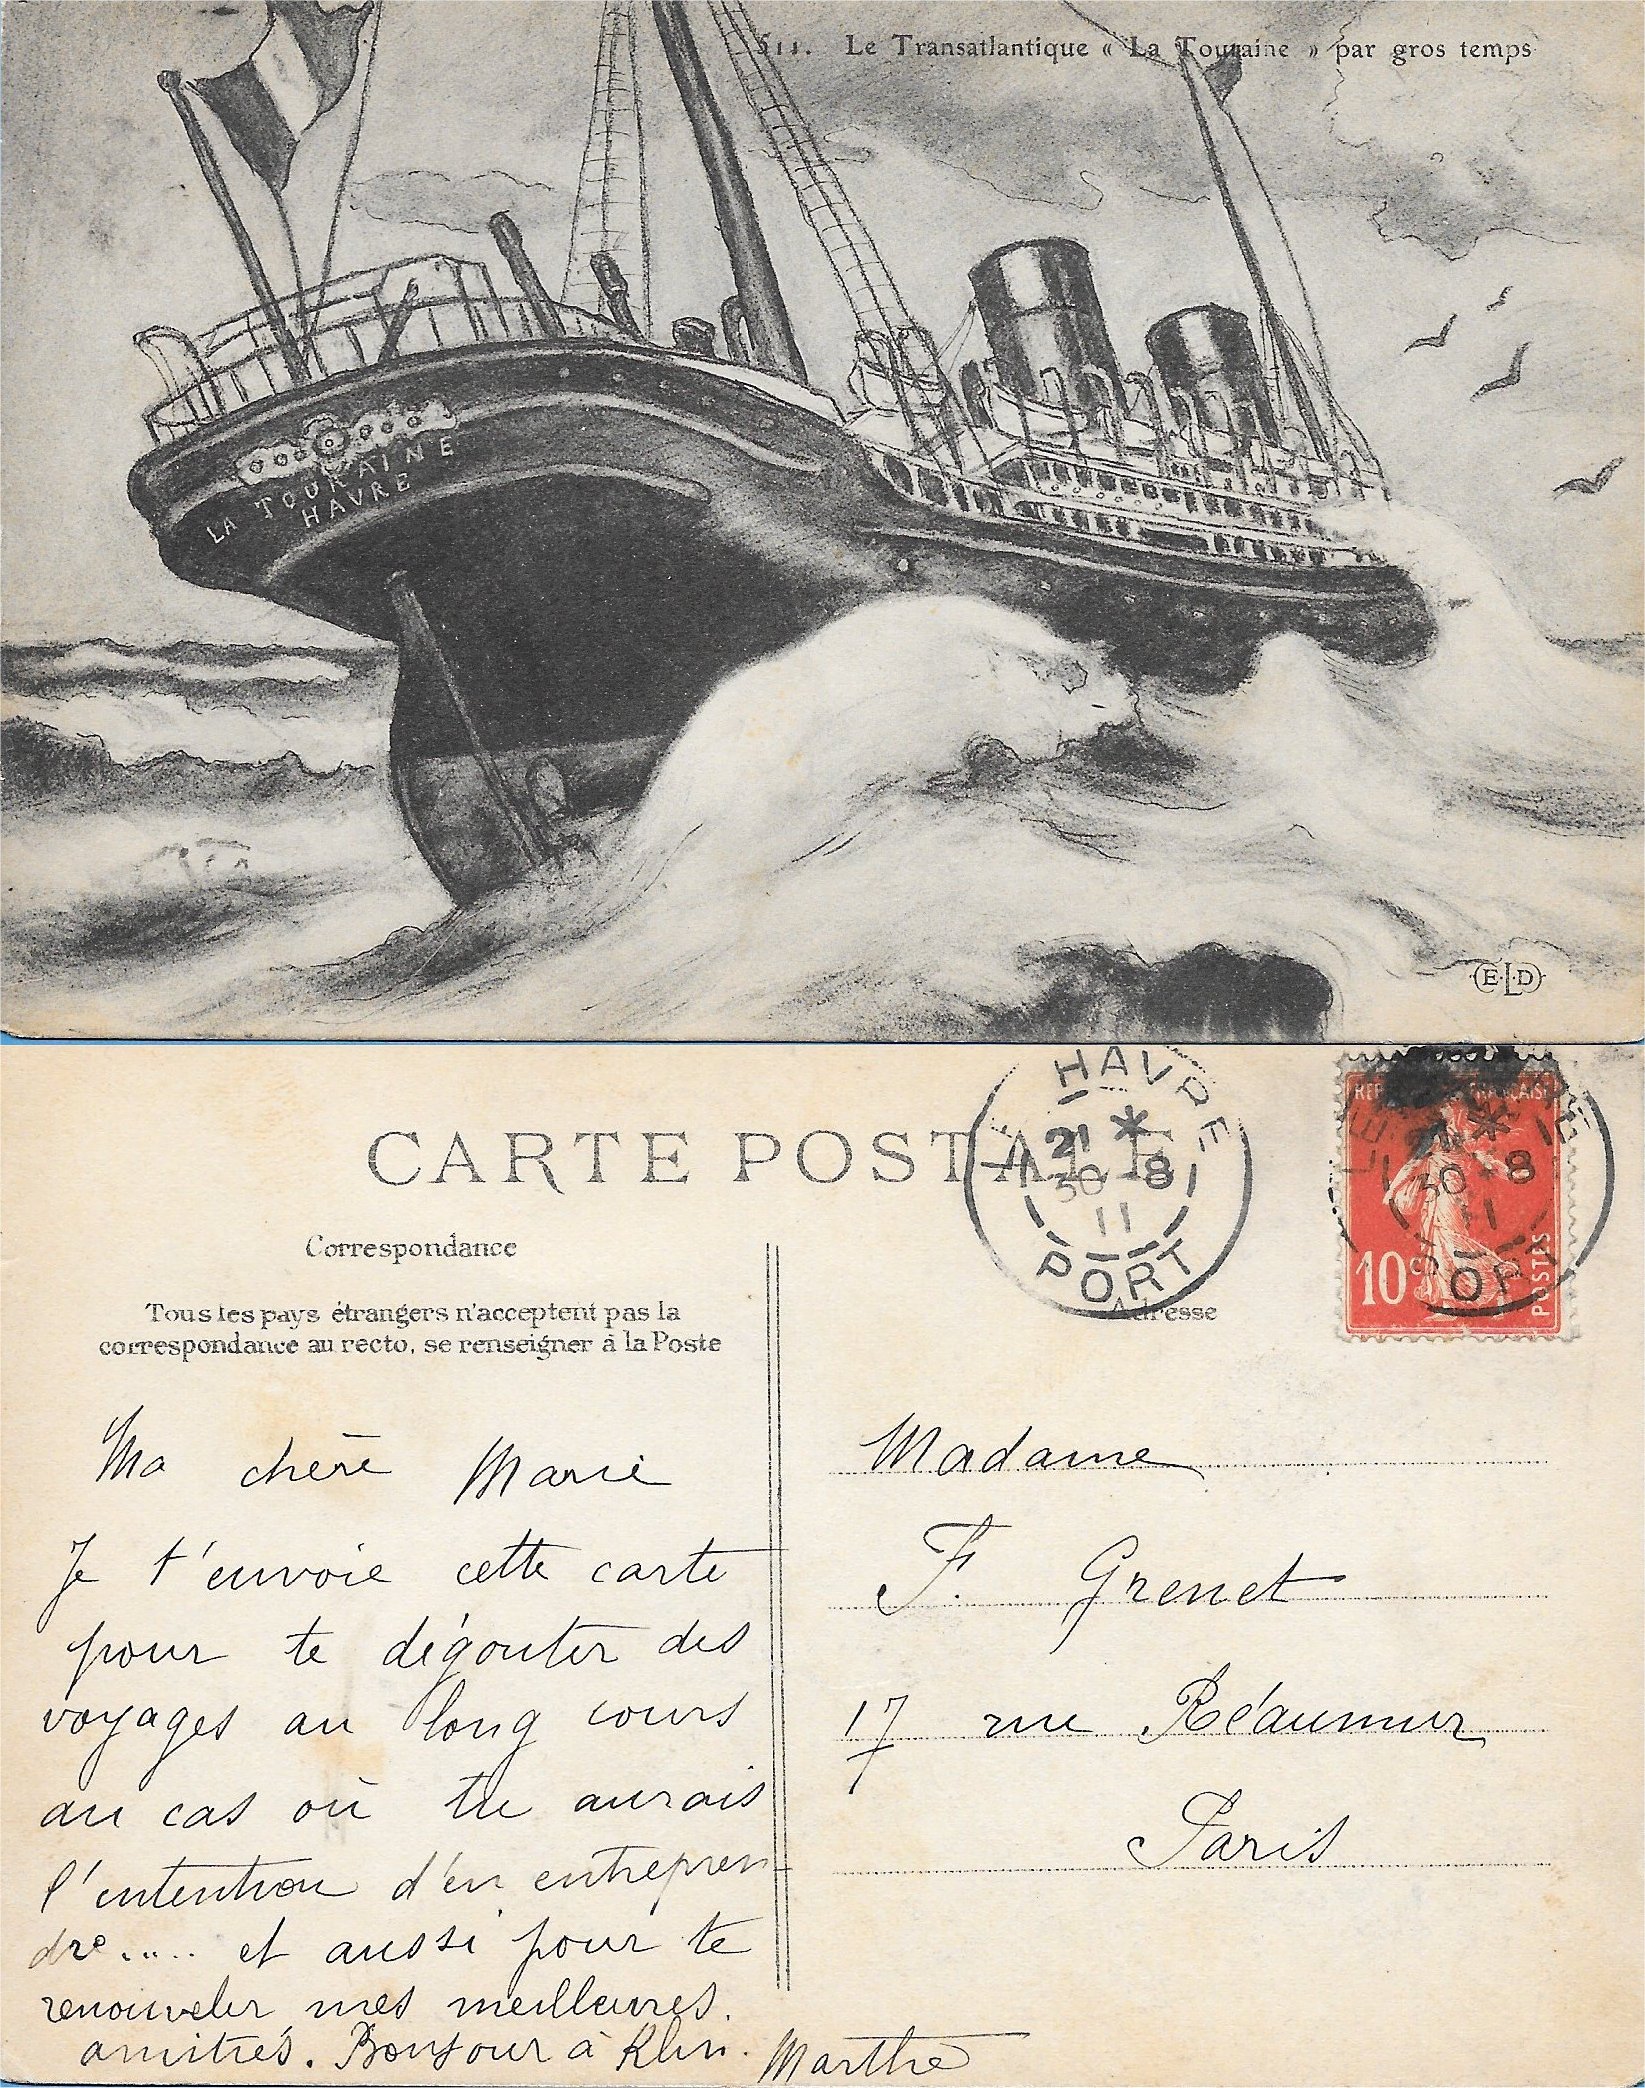 511. Le Transatlantique « La Touraine » par gros temps
LA TOURAINE
HAVRE
E.L.D
CARTE POSTALE
LE HAVRE
21 *
30 - 8
11
PORT
REPUBLIQUE FRANÇAISE
10c
POSTES
LE HAVRE
21 *
30 - 8
11
PORT
Correspondance
Tous les pays étrangers n'acceptent pas la
correspondance au recto, se renseigner à la Poste
Adresse
Ma chère Marie
Je t'envoie cette carte
pour te dégouter des
voyages au long cours
au cas où tu aurais
l'intention d'en entrepren-
dre ..... et aussi pour te
renouveler mes meilleures
amitiés. Bonjour à
Marthe
Madame
F. Grenet
17 rue Réaumur
Paris